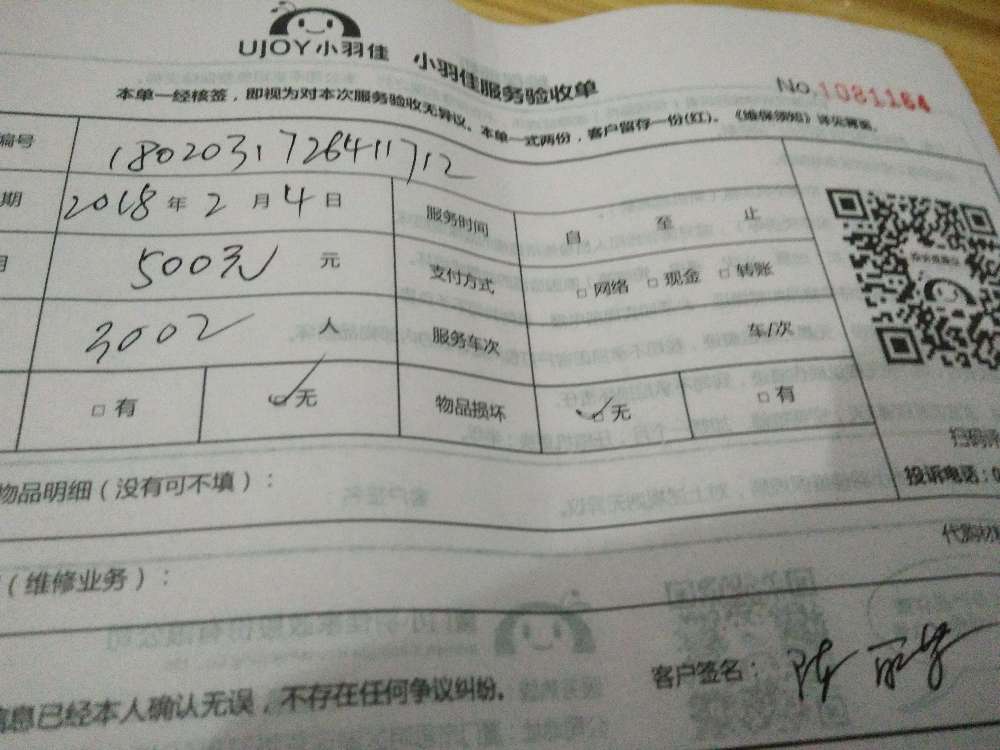 UJOY小羽佳 小羽佳服务验收单
No.1081164
本单一经核签，即视为对本次服务验收无异议。本单一式两份，客户留存一份(红)。《维保须知》详见背面。
编号 1802031726411712
期 2018年2月4日 服务时间 自 至 止
500元 元 支付方式 □网络 □现金 □转账
3002 人 服务车次 车/次
□有 □无 物品损坏 □无 □有
扫码
物品明细（没有可不填）：
投诉电话：0
（维修业务）：
信息已经本人确认无误，不存在任何争议纠纷。
客户签名：陈